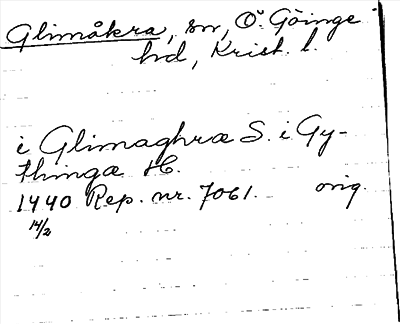 Glimåkra, sn, Ö. Göinge
hd, Krist. l.
i Glimaghra S. i Gy-
thinga H.
1440 Rep. nr. 7061. orig.
14/2